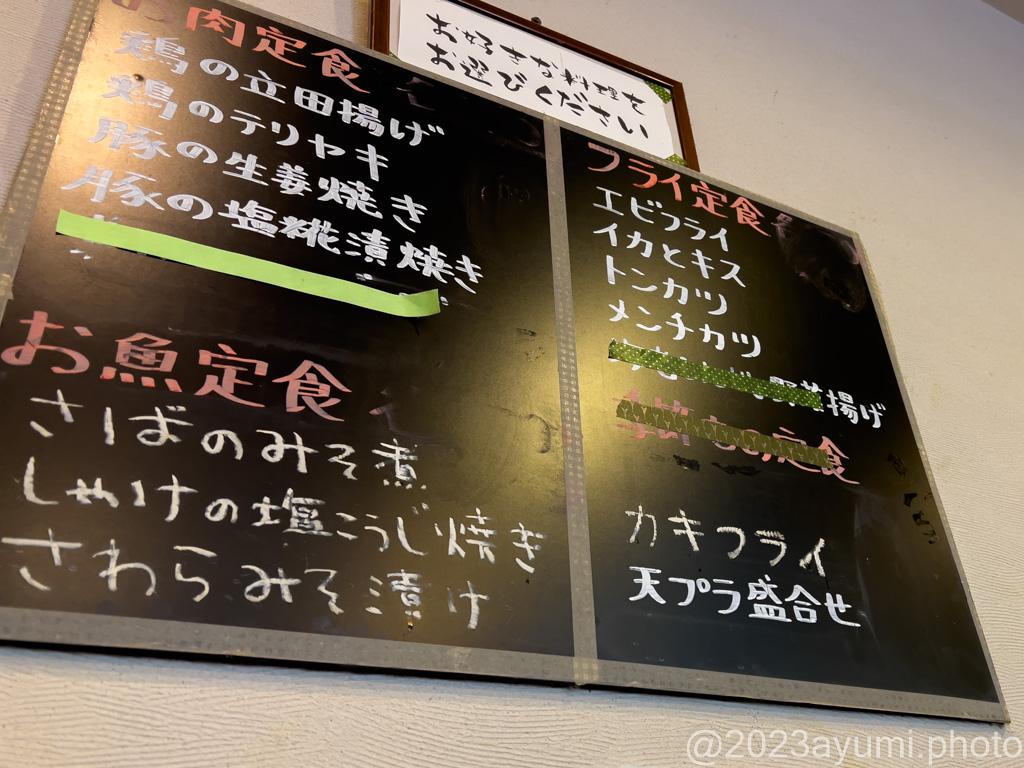 お好きな料理を
お選びください
お肉定食
鶏の立田揚げ
鶏のテリヤキ
豚の生姜焼き
豚の塩糀漬焼き
お魚定食
さばのみそ煮
しゃけの塩こうじ焼き
さわらみそ漬け
フライ定食
エビフライ
イカとキス
トンカツ
メンチカツ
野菜揚げ
の定食
カキフライ
天プラ盛合せ
@2023ayumi.photo